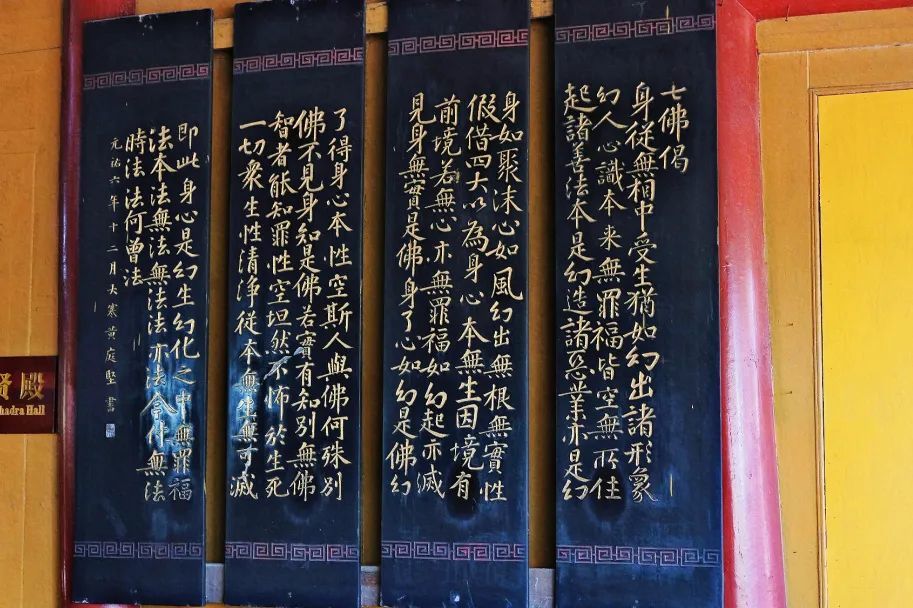 七佛偈
身從無相中受生猶如幻出諸形象
幻人心識本来無罪福皆空無所住
起諸善法本是幻造諸惡業亦是幻
身如聚沫心如風幻出無根無實性
假借四大以為身心本無生因境有
前境若無心亦無罪福如幻起亦滅
見身無實是佛身了心如幻是佛幻
了得身心本性空斯人與佛何殊別
佛不見身知是佛若實有知別無佛
智者能知罪性空坦然不怖於生死
一切衆生性清淨從本無生無可滅
即此身心是幻生幻化之中無罪福
法本法無法無法法亦法今付無法
時法法何曾法
元祐六年十二月大寒黄庭堅書
賢殿
hadra Hall